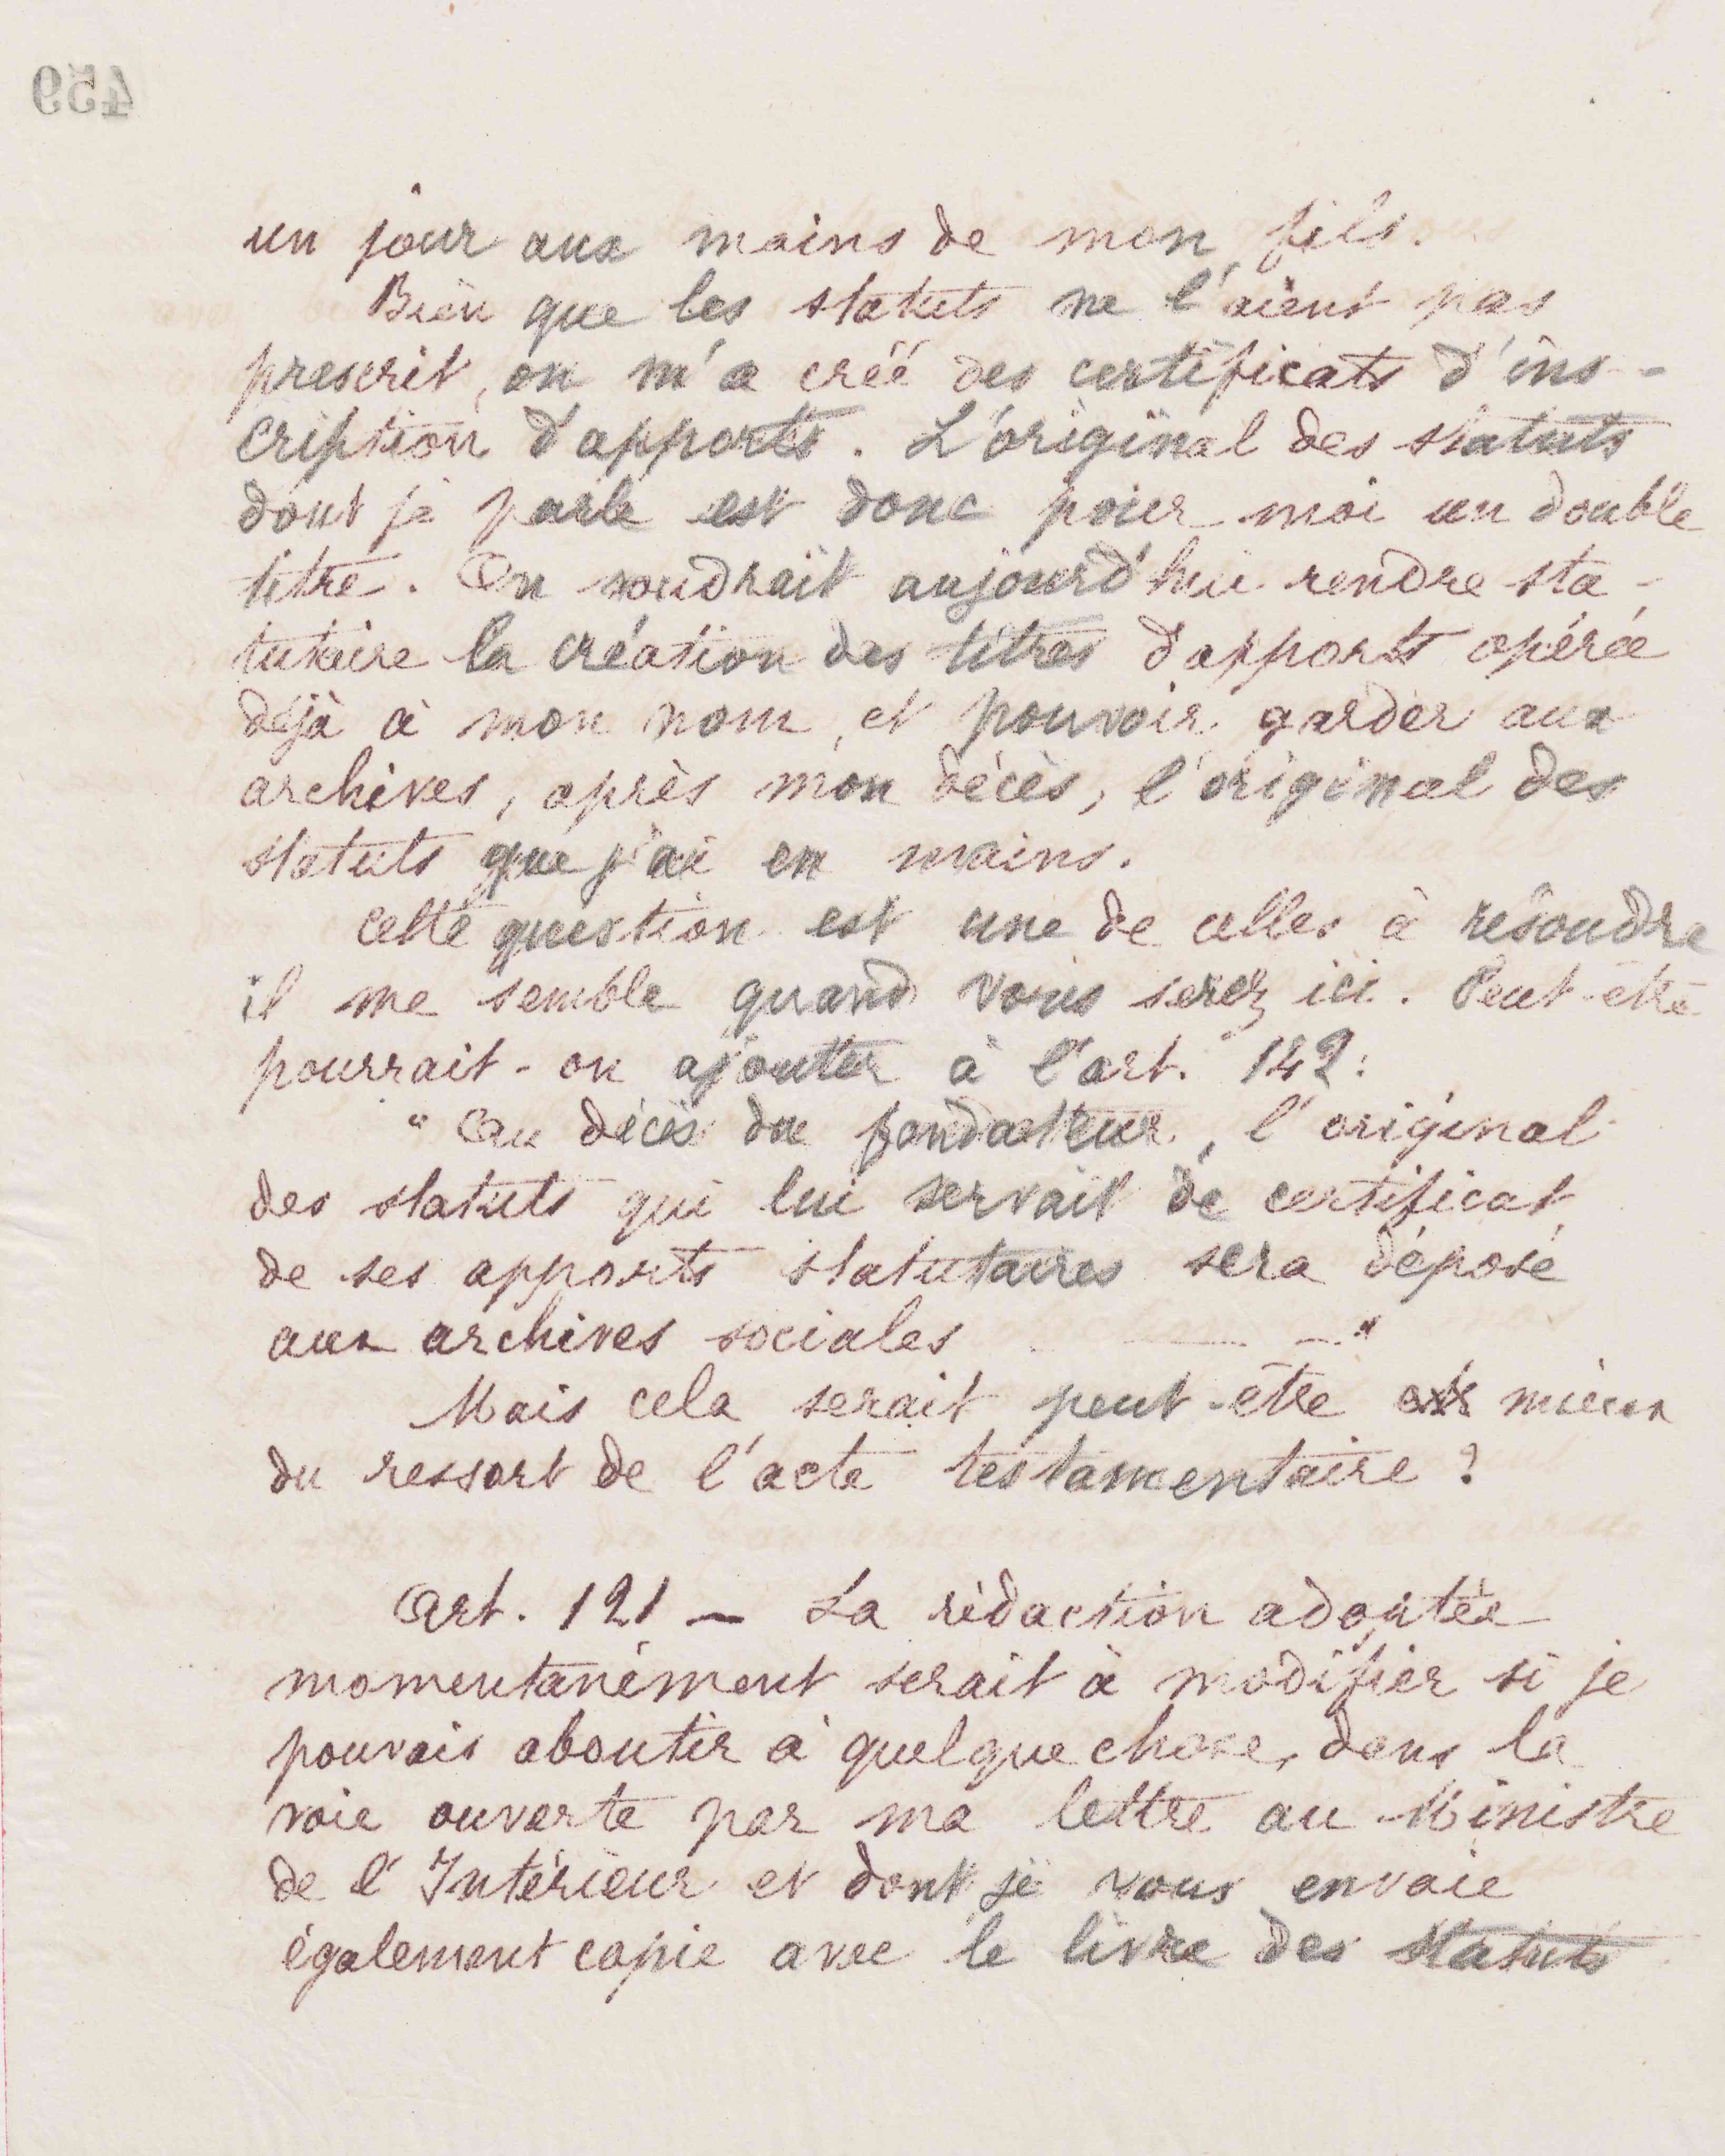 459
un jour aux mains de mon fils.
Bien que les statuts ne l'aient pas
prescrit, on m'a créé des certificats d'ins-
cription d'apports. L'original des statuts
dont je parle est donc pour moi un double
titre. On voudrait aujourd'hui rendre sta-
tutaire la création des titres d'apports opérée
déjà à mon nom, et pouvoir garder aux
archives, après mon décès, l'original des
statuts que j'ai en mains.
Cette question est une de celles à résoudre
il me semble quand vous serez ici. Peut-être
pourrait-on ajouter à l'art. 142:
"Au décès du fondateur, l'original
des statuts qui lui servait de certificat
de ses apports statutaires sera déposé
aux archives sociales ———"
Mais cela serait peut-être mieux
du ressort de l'acte testamentaire?
Art. 121 — La rédaction adoptée
momentanément serait à modifier si je
pouvais aboutir à quelque chose, dans la
voie ouverte par ma lettre au Ministre
de l'Intérieur et dont je vous envoie
également copie avec le livre des statuts